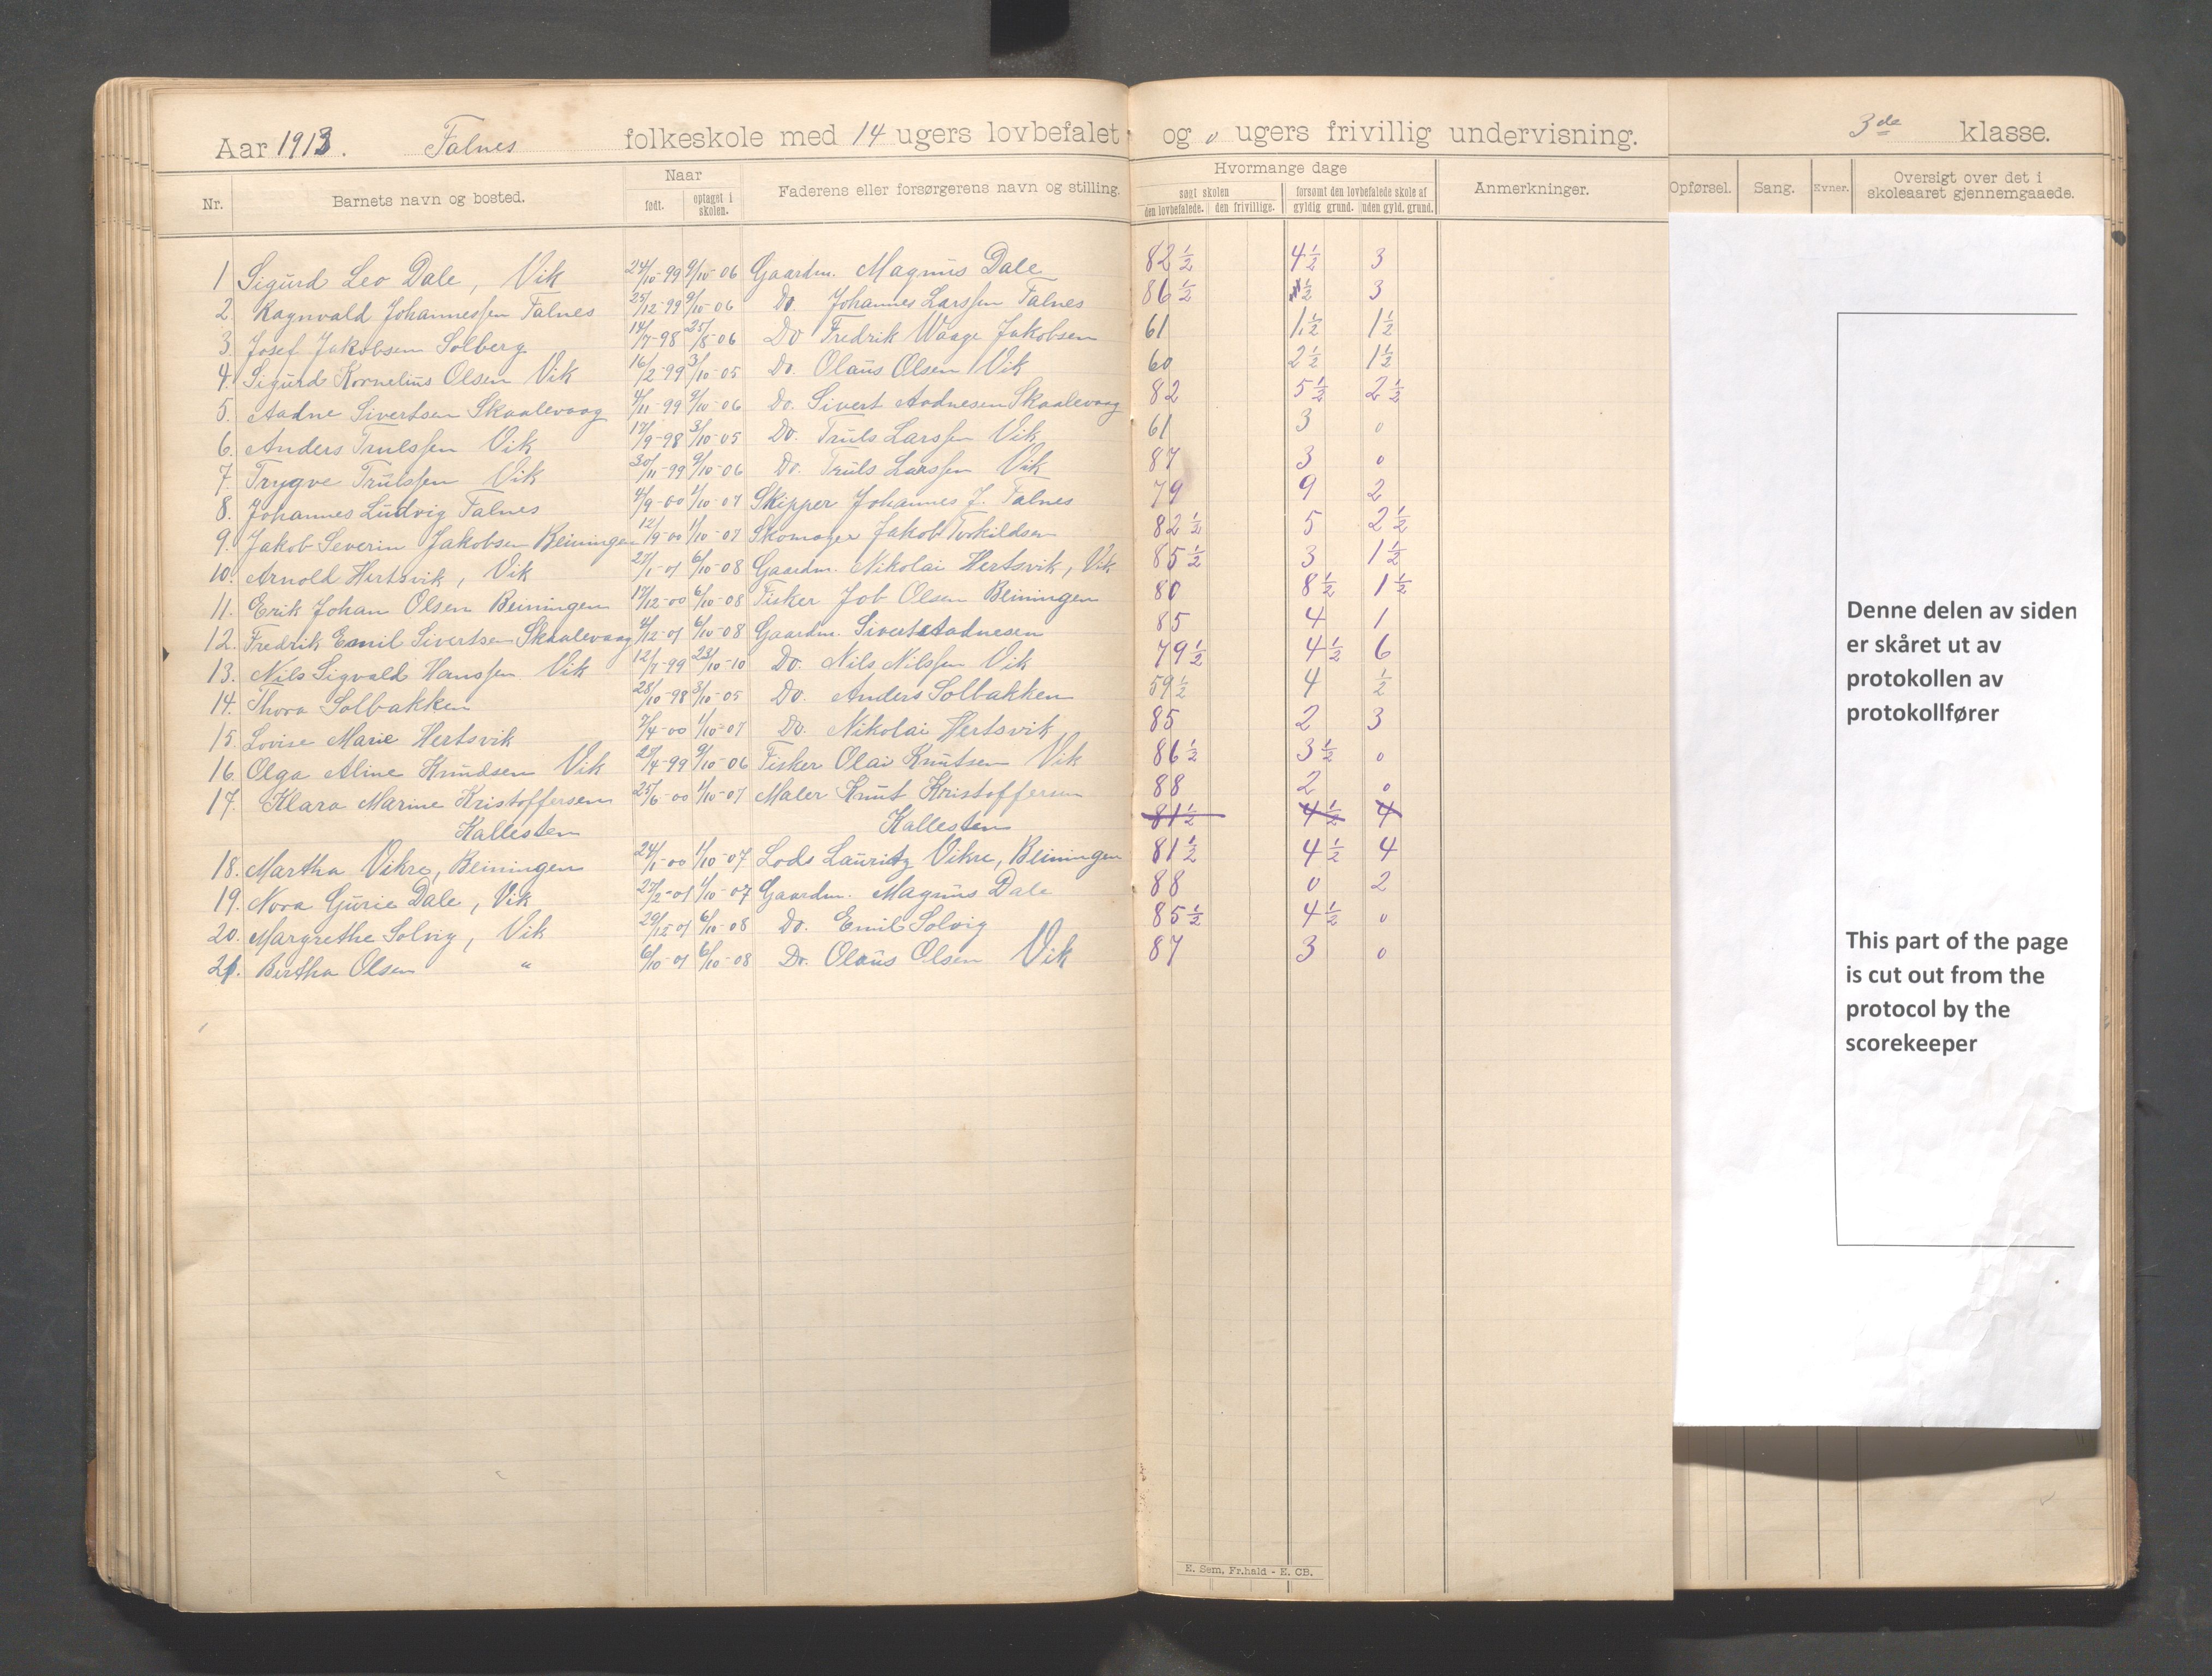 Aar 1913. Falnes folkeskole med 14 ugers lovbefalet og 0 ugers frivillig undervisning. 3de klasse.
Nr. Barnets navn og bosted. Naar født. optaget i skolen. Faderens eller forsørgerens navn og stilling. Hvormange dage søgt skolen den lovbefalede. den frivillige. forsømt den lovbefalede skole af gyldig grund. uden gyld. grund. Anmerkninger. Opførsel. Sang. Evner. Oversigt over det i skoleaaret gjennemgaaede.
1 Sigurd Leo Dale, Vik 24/10-99 9/10-06 Gaardm. Magnus Dale 82 1/2 4 1/2 3
2. Ragnvald Johannesen Falnes 25/12-99 9/10-06 Do. Johannes Larssen Falnes 86 1/2 1/2 3
3. Josef Jakobsen Solberg 14/7-98 25/8-06 Do Fredrik Waage Jakobsen 61 1 1/2 1 1/2
4. Sigurd Kornelius Olsen Vik 16/2-99 3/10-05 Do. Olaus Olsen Vik 60 2 1/2 1 1/2
5. Aadne Sivertsen Skaalevaag 4/11-99 9/10-06 Do. Sivert Aadnesen Skaalevaag 82 5 1/2 2 1/2
6. Anders Trulssen Vik 17/9-98 3/10-05 Do. Truls Larssen Vik 61 3 0
7. Trygve Trulssen Vik 30/11-99 9/10-06 Do. Truls Larssen Vik 87 3 0
8. Johannes Ludvig Falnes 4/9-00 1/10-07 Skipper Johannes J. Falnes 79 9 2
9. Jakob Severin Jakobsen Beiningen 12/9-00 1/10-07 Skomager Jakob Torkildsen 82 1/2 5 2 1/2
10. Arnold Hertsvik, Vik 27/1-01 6/10-08 Gaardm. Nikolai Hertsvik, Vik 85 1/2 3 1 1/2
11. Erik Johan Olsen Beiningen 17/12-00 6/10-08 Fisker Job Olsen Beiningen 80 8 1/2 1 1/2
12. Fredrik Emil Sivertsen Skaalevaag 4/12-01 6/10-08 Gaardm. Sivert Aadnesen 85 4 1
13. Nils Sigvald Hanssen Vik 12/7-99 23/10-10 Do. Nils Nilssen Vik 79 1/2 4 1/2 6
14. Thora Solbakken 28/10-98 3/10-05 Do. Anders Solbakken 59 1/2 4 1/2
15. Lovise Marie Hertsvik 7/4-00 1/10-07 Do. Nikolai Hertsvik 85 2 3
16. Olga Aline Knudsen Vik 27/4-99 9/10-06 Fisker Olai Knutsen Vik 86 1/2 3 1/2 0
17. Klara Marine Kristoffersen 25/6-00 1/10-07 Maler Knut Kristoffersen 88 2 0
Kallesten Kallesten 81 1/2 4 1/2 4
18. Martha Vikre, Beiningen 24/1-00 1/10-07 Lods Lauritz Vikre, Beiningen 81 1/2 4 1/2 4
19. Nora Gurie Dale, Vik 27/2-01 1/10-07 Gaardm. Magnus Dale 88 0 2
20. Margrethe Solvig, Vik 29/12-01 6/10-08 Do. Emil Solvig 85 1/2 4 1/2 0
21. Bertha Olsen " 6/10-01 6/10-08 Do. Olaus Olsen Vik 87 3 0
E. Sem, Fr.hald - E. CB.
Denne delen av siden
er skåret ut av
protokollen av
protokollfører
This part of the page
is cut out from the
protocol by the
scorekeeper